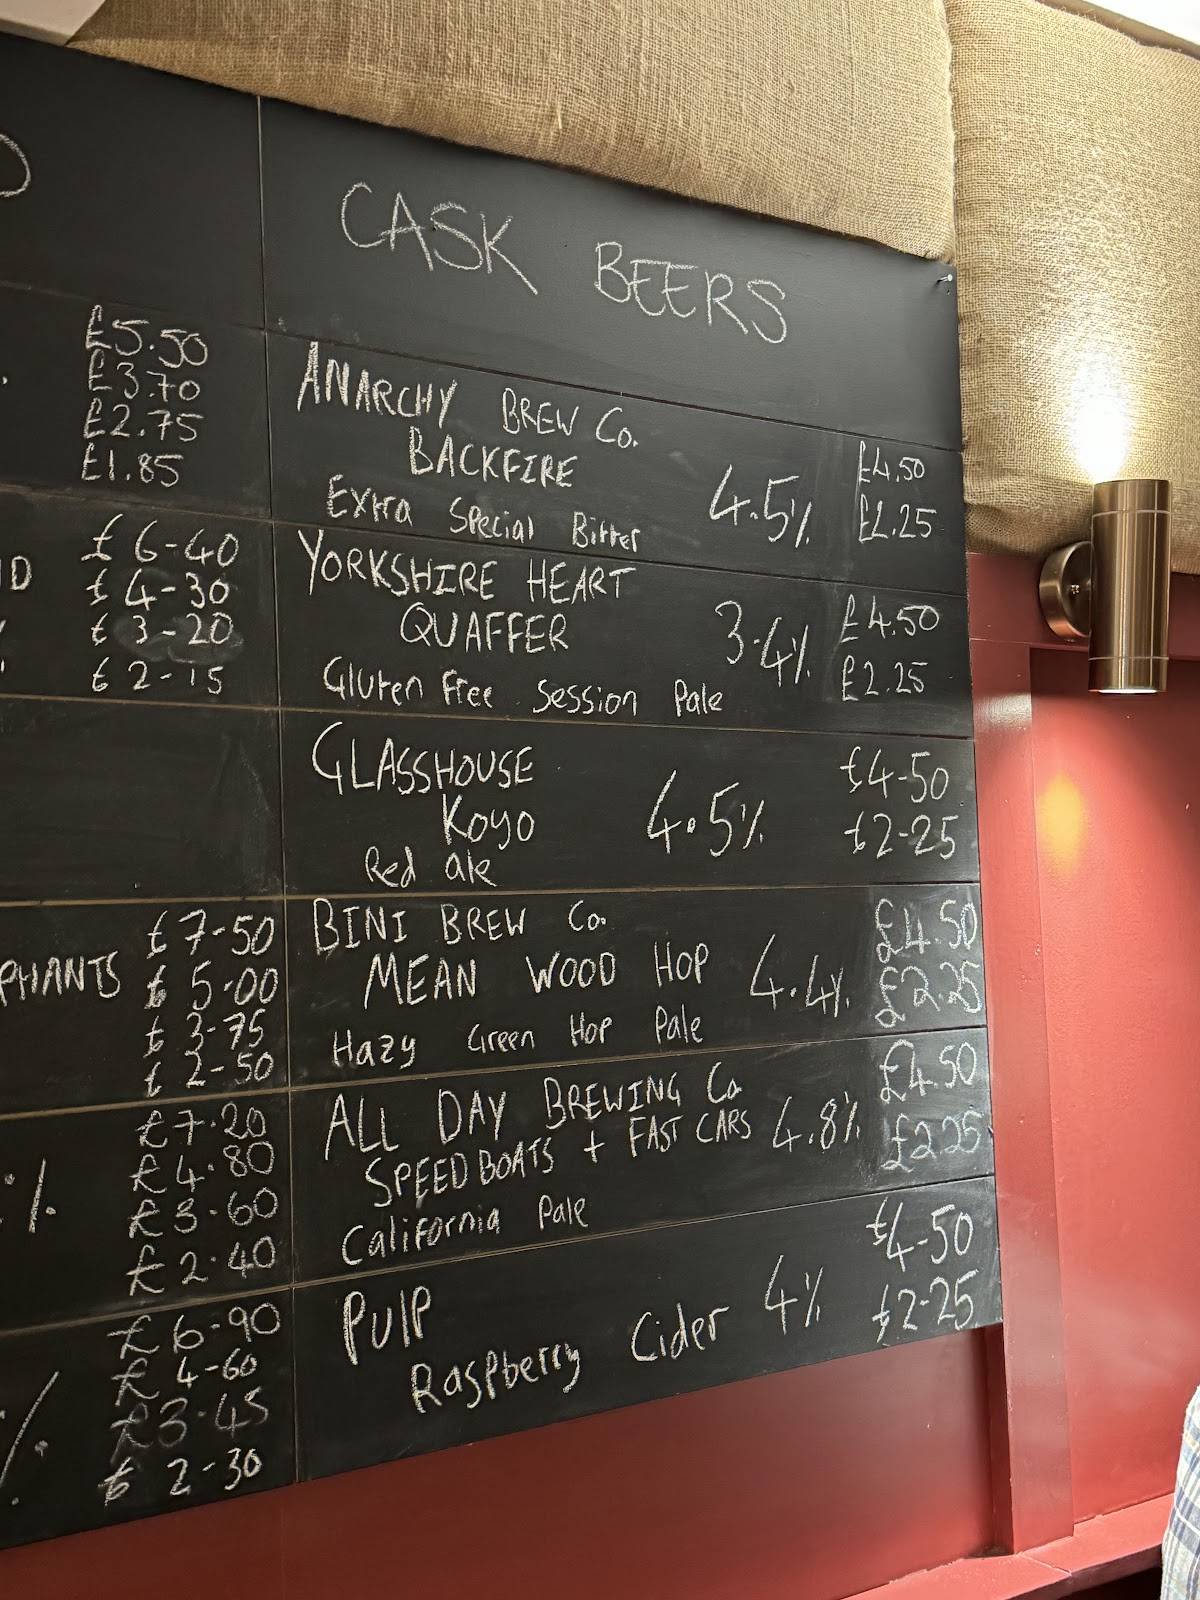 £5.50
£3.70
£2.75
£1.85
£6-40
£4-30
£3-20
£2-15
£7-50
PHANTS £5-00
£3-75
£2-50
£7.20
£4.80
£3.60
£2.40
£6-90
£4-60
£3-45
£2-30
CASK BEERS
ANARCHY BREW Co.
BACKFIRE
Extra Special Bitter
4.5%
£4.50
£2.25
YORKSHIRE HEART
QUAFFER
Gluten Free Session Pale
3.4%
£4.50
£2.25
GLASSHOUSE
Koyo
Red ale
4.5%
£4-50
£2-25
BINI BREW Co.
MEAN WOOD HOP
Hazy Green Hop Pale
4.4%
£4.50
£2.25
ALL DAY BREWING Co
SPEEDBOATS + FAST CARS
California Pale
4.8%
£4.50
£2.25
PULP
Raspberry Cider
4%
£4-50
£2-25